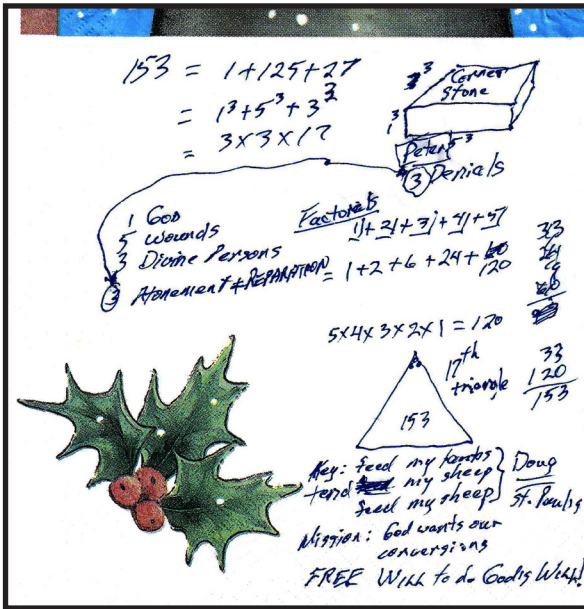 153 = 1+125+27
= 1³+5³+3³
= 3×3×17
3
Corner
Stone
1³
Peter 5³
3 Denials
1 God
5 Wounds
3 Divine Persons
3 Atonement + REPARATION
Factorials
1!+2!+3!+4!+5!
= 1+2+6+24+120
33
5×4×3×2×1 = 120
17th
triangle
153
33
120
153
Key: feed my lambs
tend my sheep
feed my sheep
Doug
St. Paul's
Mission: God wants our
conversions
FREE WILL to do God's Will!